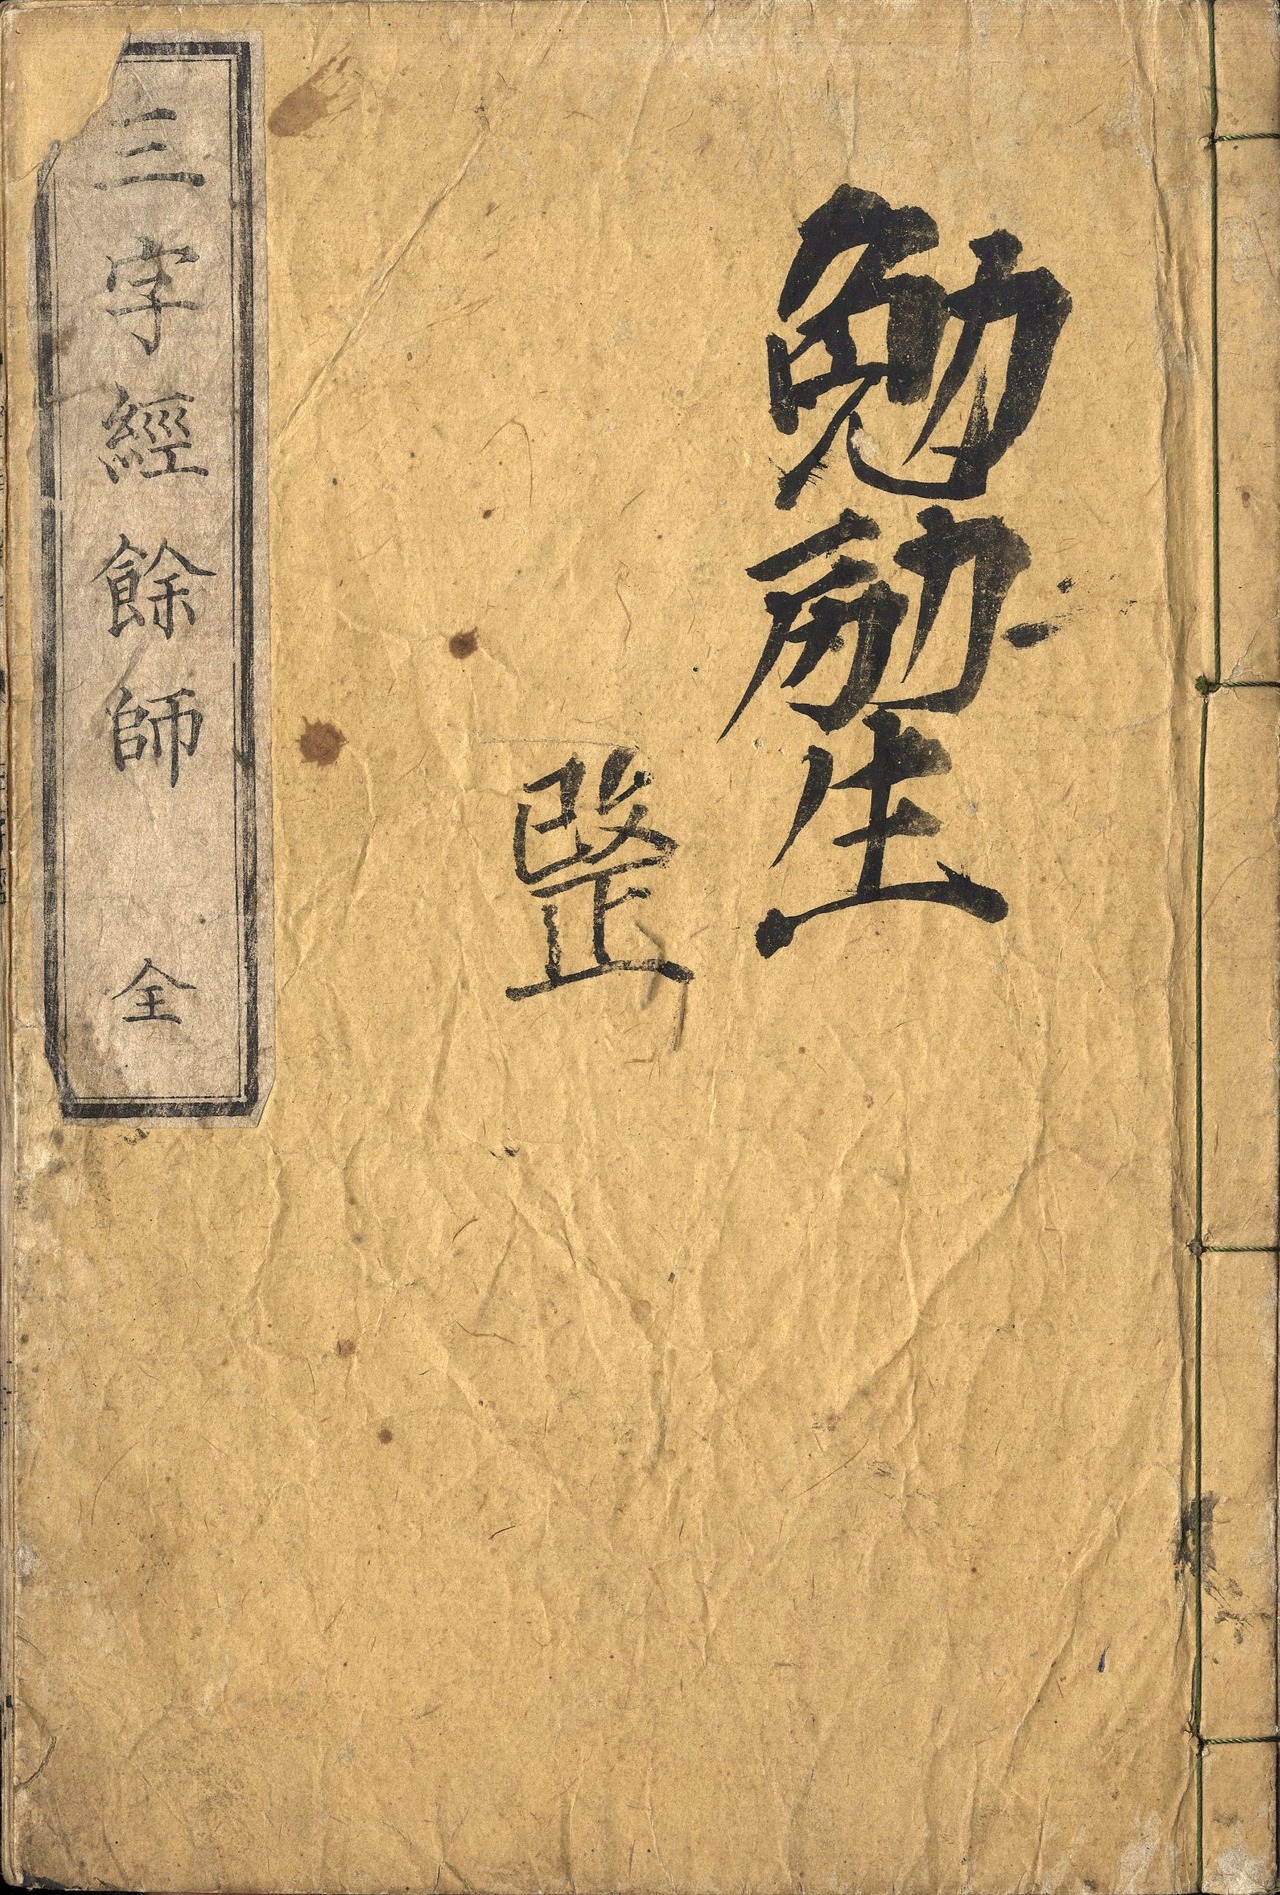 勉励生
三字經餘師 全